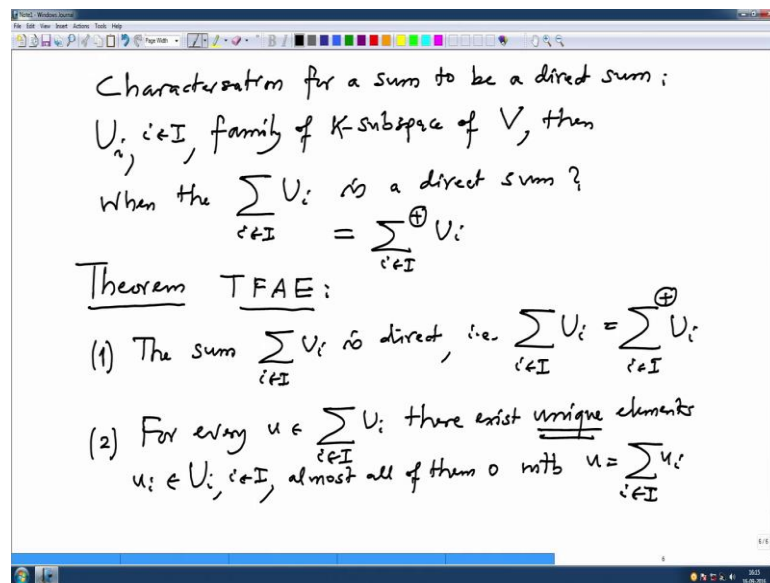 Note1 - Windows Journal
File Edit View Insert Actions Tools Help
Page Width
Charactersation for a sum to be a direct sum :
U_i, i∈I, family of K-subspace of V, then
When the ∑_{i∈I} U_i is a direct sum ?
= ∑^⊕_{i∈I} U_i
Theorem TFAE :
(1) The sum ∑_{i∈I} U_i is direct, i.e. ∑_{i∈I} U_i = ∑^⊕_{i∈I} U_i
(2) For every u ∈ ∑_{i∈I} U_i there exist unique elements
u_i ∈ U_i, i∈I, almost all of them 0 with u = ∑_{i∈I} u_i
6/6
6
16:15